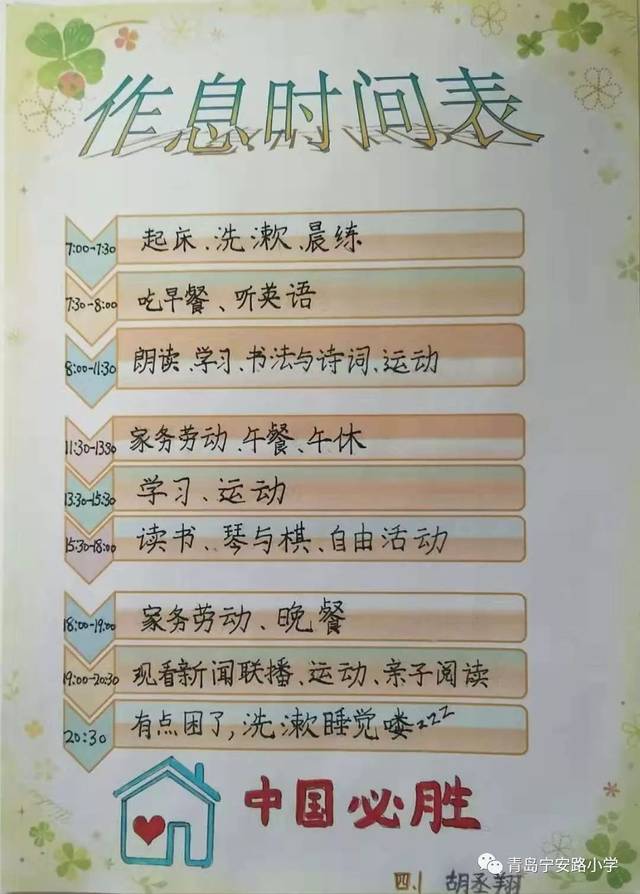 作息时间表
7:00-7:30 起床、洗漱、晨练
7:30-8:00 吃早餐、听英语
8:00-11:30 朗读、学习、书法与诗词、运动
11:30-13:30 家务劳动、午餐、午休
13:30-15:30 学习、运动
15:30-18:00 读书、琴与棋、自由活动
18:00-19:00 家务劳动、晚餐
19:00-20:30 观看新闻联播、运动、亲子阅读
20:30 有点困了,洗漱睡觉喽zzz
中国必胜
青岛宁安路小学
四.1 胡丞翔